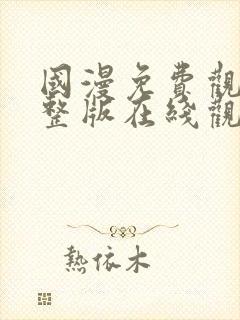 國漫免費觀
整版在綫觀
熱依木